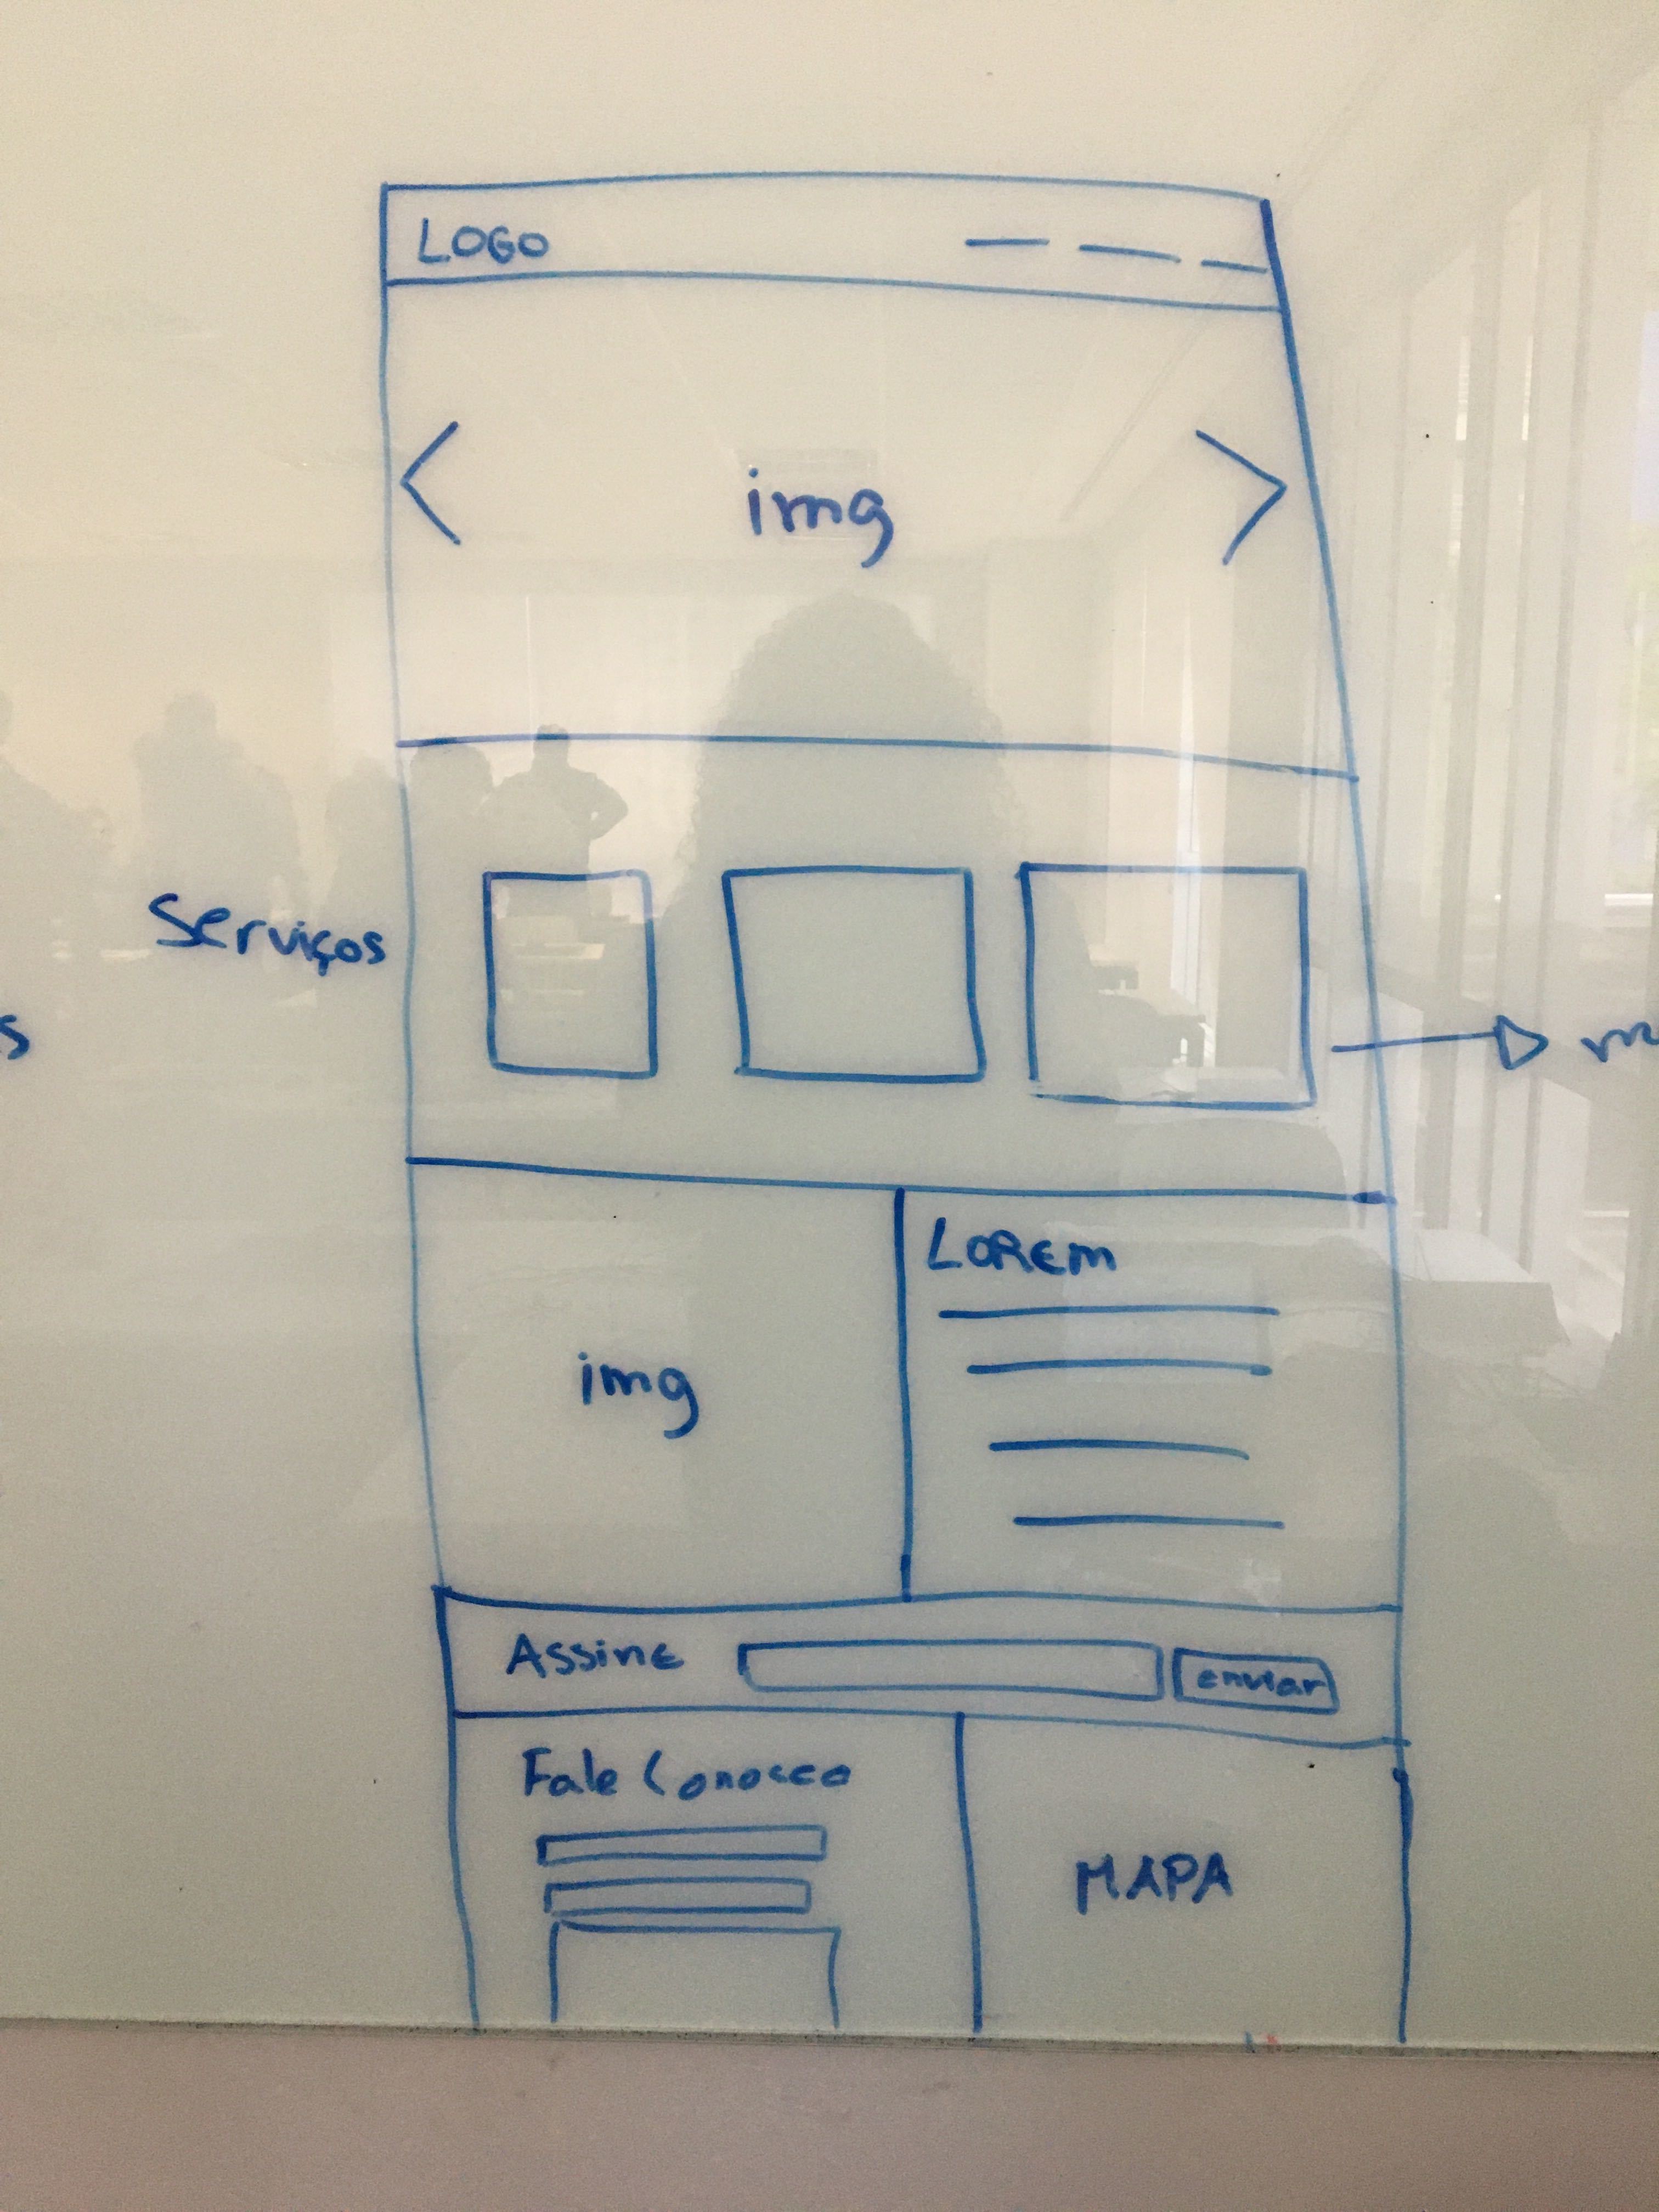 LOGO
img
Serviços
LOREM
img
Assine
enviar
Fale Conosco
MAPA